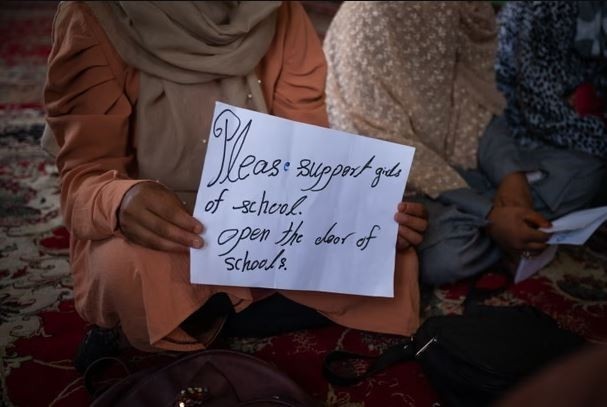 Please support girls
of school.
Open the door of
schools.